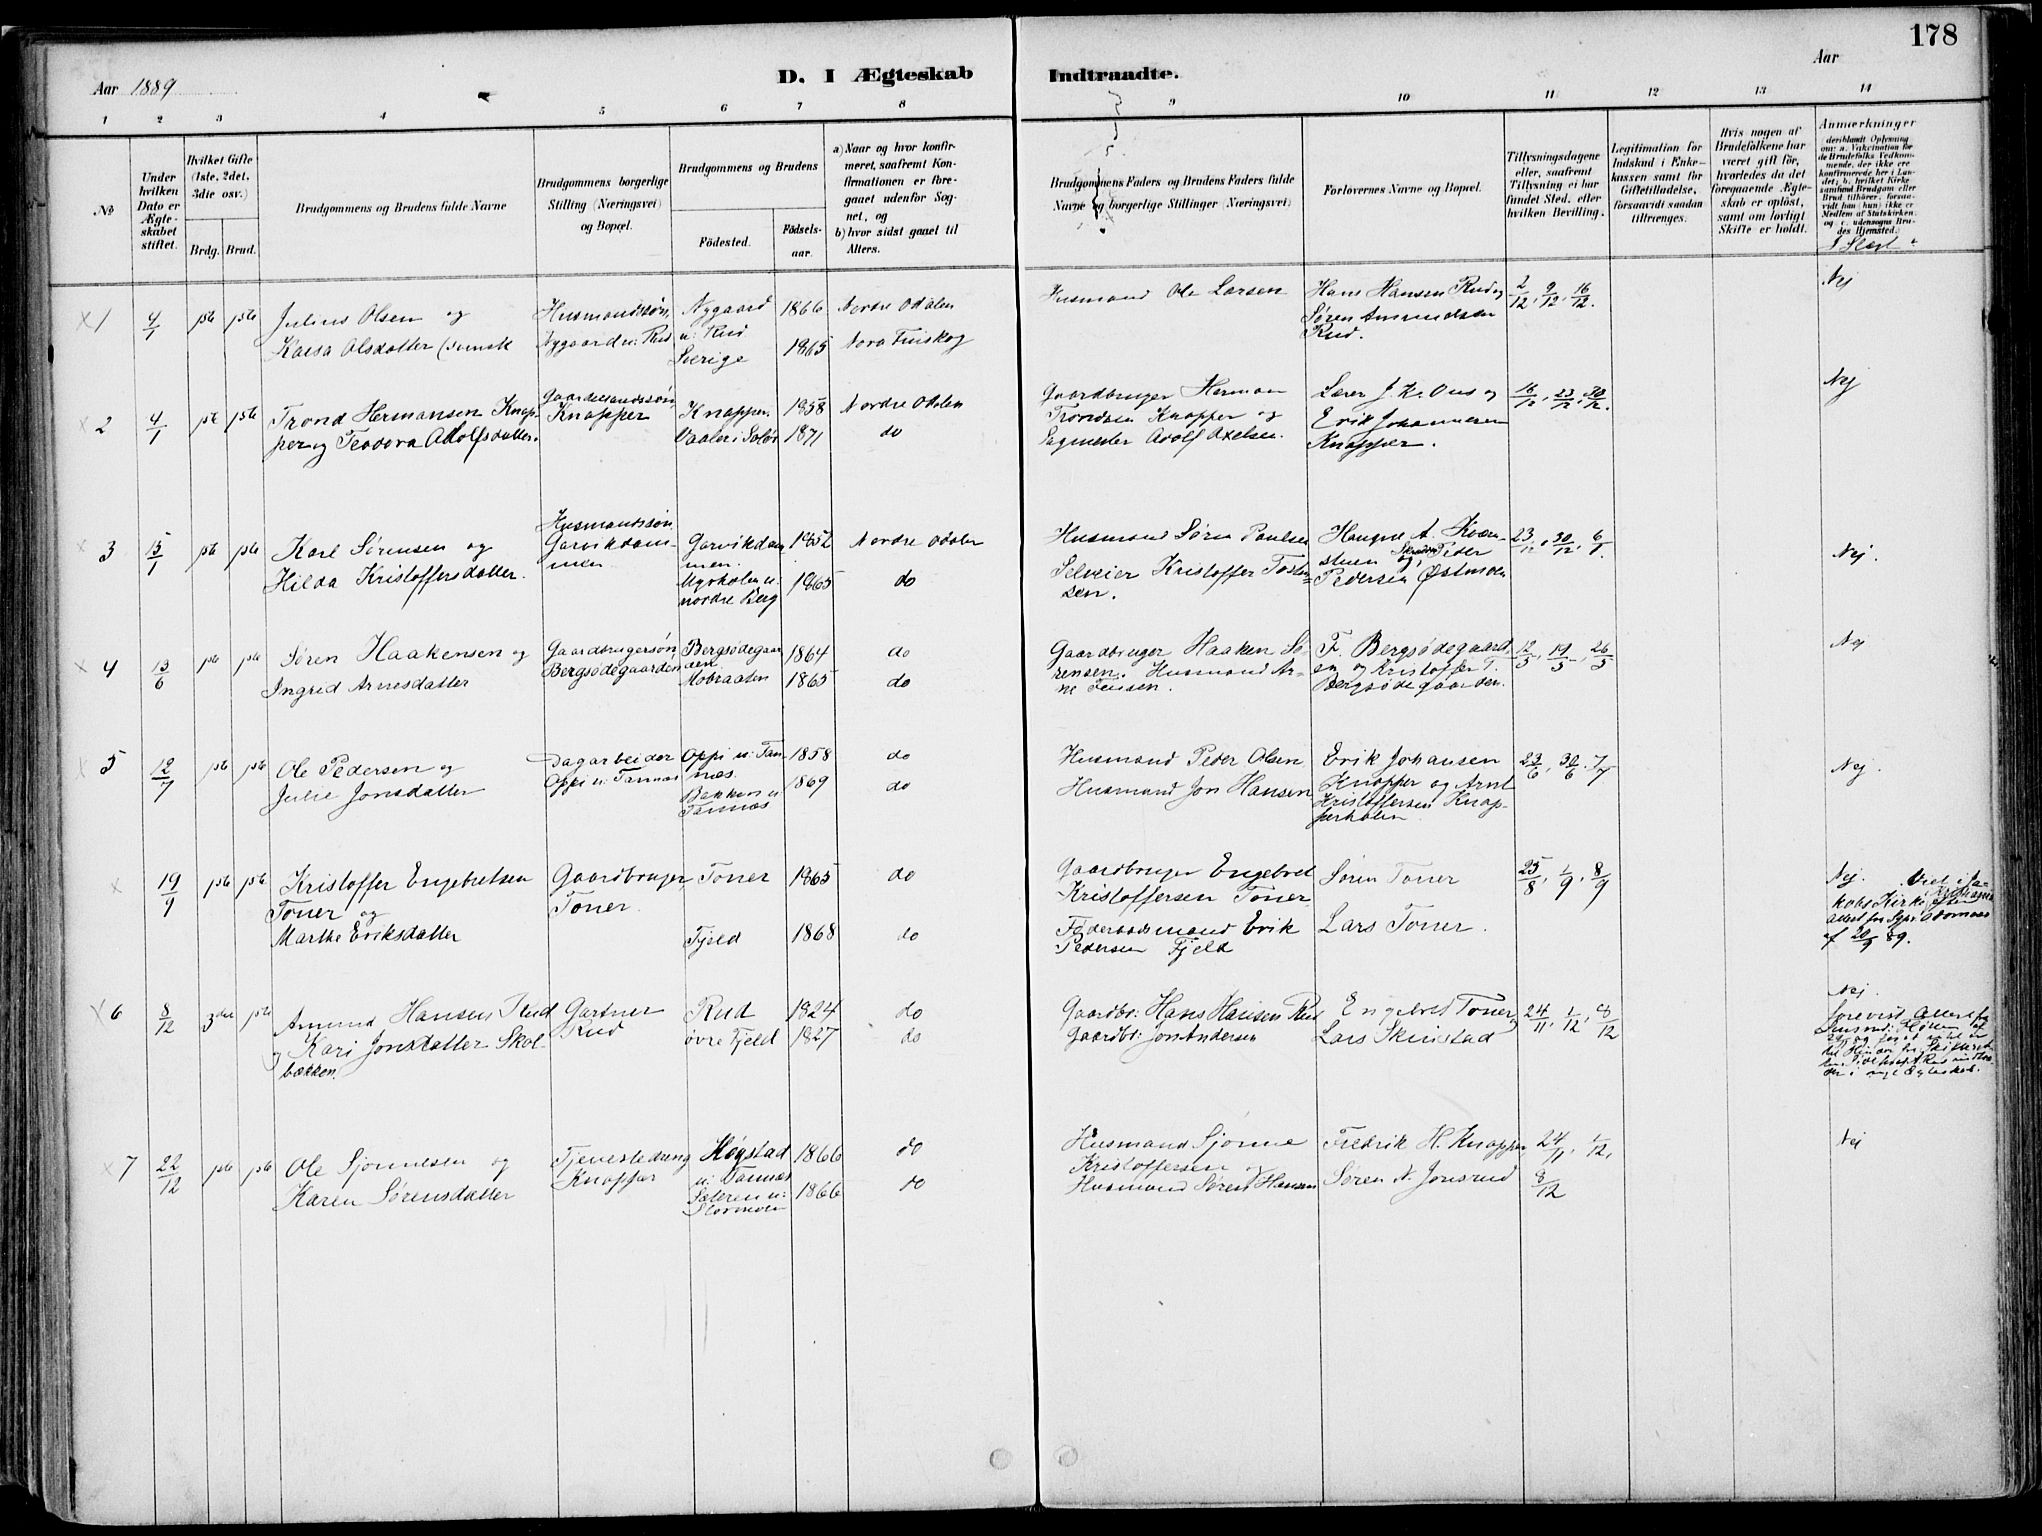 178
Aar 1889
D. I Ægteskab Indtraadte.
Aar
1 2 3 4 5 6 7 8 9 10 11 12 13 14
No
Under hvilken Dato er Ægteskabet stiftet.
Hvilket Gifte (1ste, 2det, 3die osv.)
Brdg. Brud.
Brudgommens og Brudens fulde Navne
Brudgommens borgerlige Stilling (Næringsvei) og Bopæl.
Brudgommens og Brudens
Fødested.
Fødsels-aar.
a) Naar og hvor konfirmeret, saafremt Konfirmationen er foregaaet udenfor Sognet, og
b) hvor sidst gaaet til Alters.
Brudgommens Faders og Brudens Faders fulde Navne og borgerlige Stillinger (Næringsvei)
Forlovernes Navne og Bopæl.
Tillysningsdagene eller, saafremt Tillysning ei har fundet Sted, efter hvilken Bevilling.
Legitimation for Indskud i Enkekassen samt for Giftetilladelse, forsaavidt saadan tiltrænges.
Hvis nogen af Brudefolkene har været gift før, hvorledes da det foregaaende Ægteskab er opløst, samt om lovligt Skifte er holdt.
Anmærkninger
deriblandt Oplysning om: a. Vakcination for de Brudefolks Vedkommende, der ikke ere konfirmerede her i Landet; b. hvilket Kirkesamfund Brudgom eller Brud tilhører, forsaavidt han (hun) ikke er Medlem af Statskirken, og c. udensogns Brudes Hjemsted.
I Slægt
1 4/1 1ste 1ste Julius Olsen og Husmandssøn, Nygaard 1866 Nordre Odalen
Kaisa Olsdatter (svensk Nygaard u: Rud u: Rud Sverige 1865 Nora Finskog
Husmand Ole Larsen Hans Hansen Rud og 2/12, 9/12, 16/12. Nej
Søren Amundsen
Rud.
2 4/1 1ste 1ste Trond Hermansen Knap- Gaardmandssøn Knapper 1858 Nordre Odalen
per og Teodora Adolfsdatter. Knapper Vaaler i Solør 1871 do
Gaardbruger Herman Lærer J. K. Ous og 16/12, 23/12, 30/12. Nej
Trondsen Knapper og Erik Johannesen
Sagmester Adolf Axelsen. Knapper.
3 15/1 1ste 1ste Karl Sørensen og Husmandssøn Garvikdam- 1852 Nordre Odalen
Garvikdam- men.
Hilda Kristoffersdatter. men Myrholen u: 1865 do
nordre Berg
Husmand Søren Paulsen Haagen A. Kværn- 23/12, 30/12, 6/1. Nej.
stuen og Skrædder Peder
Selveier Kristoffer Tosten- Pedersen Østmoen
sen.
4 13/6 1ste 1ste Søren Haakensen og Gaardbrugersøn Bergsødegaar- 1864 do
Ingrid Arnesdatter Bergsødegaarden den. Mobraaten 1865 do
Gaardbruger Haaken Sø- F. Bergsødegaard- 12/5, 19/5, 26/5 Nej
rensen. Husmand Ar- en og Kristoffer T.
ne Jensen. Bergsødegaarden.
5 12/7 1ste 1ste Ole Pedersen og Dagarbeider Oppi u: Tan- 1858 do
Julie Jonsdatter Oppi u: Tannæs næs. Bakken u: 1869 do
Tannæs
Husmand Peder Olsen Erik Johansen 23/6, 30/6, 7/7 Nej.
Husmand Jon Hansen Knapper og Arnt
Kristoffersen Knap-
perholen
19/9 1ste 1ste Kristoffer Engebretsen Gaardbruger Toner 1865 do
Toner og Toner.
Marthe Eriksdatter Fjeld 1868 do
Gaardbruger Engebret Søren Toner 25/8, 1/9, 8/9
Kristoffersen Toner
Føderaadsmand Erik Lars Toner.
Pedersen Fjeld
Nej. Viet i Ja-
kobs Kirke Kristiania efter
Attest fra
af 20/9 89.
6 8/12 3die 1ste Amund Hansen Rud Gartner Rud 1824 do
og Kari Jonsdatter Skol- Rud øvre Fjeld 1827 do
bækken.
Gaardbr: Hans Hansen Rud Engebret Toner 24/11, 1/12, 8/12
Gaardbr: Jon Andersen Lars Skinstad
Nej.
forevist Attest fra
i nyt Ægteskab.
7 22/12 1ste 1ste Ole Sjønnesen og Tjenestedreng Høgstad 1866 do
Knapper u: Tannæs
Karen Sørensdatter Sæteren u: 1866 do
Stormoen
Husmand Sjønne Fredrik H. Knapper 24/11, 1/12, Nej
Kristoffersen og
Husmand Søren Hansen Søren A. Jonsrud 8/12